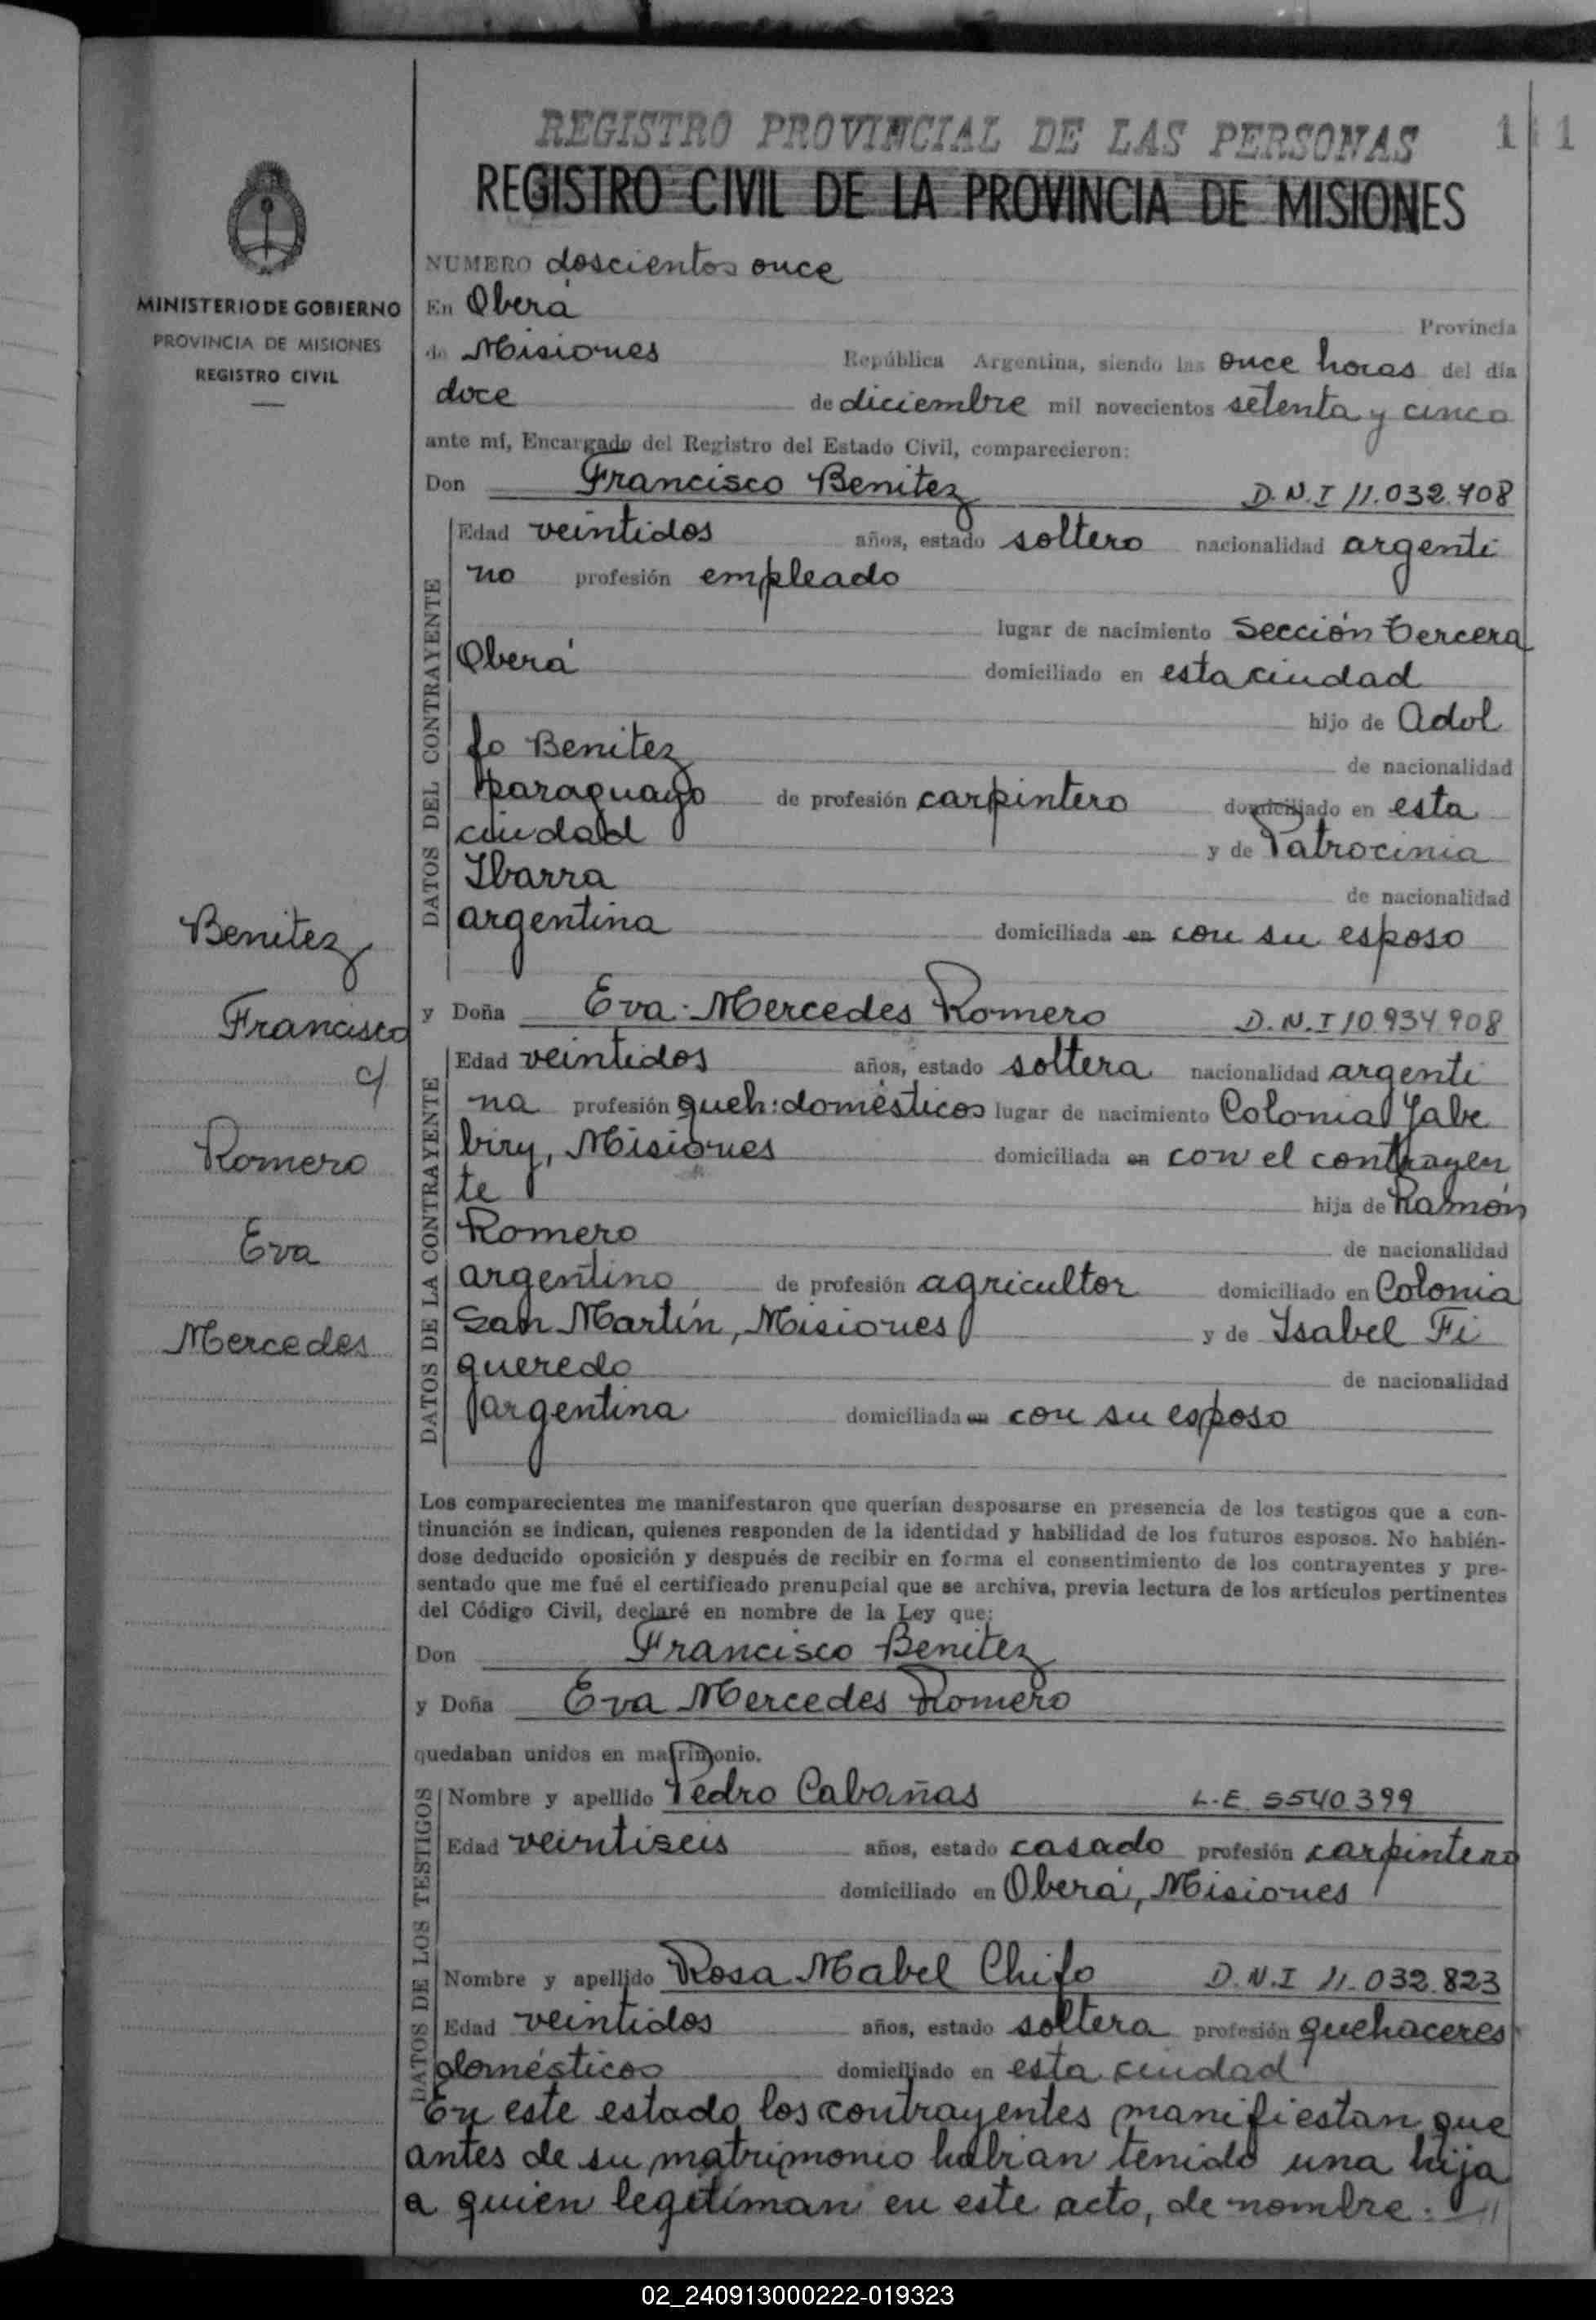 REGISTRO PROVINCIAL DE LAS PERSONAS
REGISTRO CIVIL DE LA PROVINCIA DE MISIONES
MINISTERIO DE GOBIERNO
PROVINCIA DE MISIONES
REGISTRO CIVIL
NUMERO doscientos once
En Oberá Provincia
de Misiones República Argentina, siendo las once horas del día
doce de diciembre mil novecientos setenta y cinco
ante mí, Encargado del Registro del Estado Civil, comparecieron:
Don Francisco Benitez D.N.I 11.032.708
DATOS DEL CONTRAYENTE
Edad veintidos años, estado soltero nacionalidad argenti
no profesión empleado
lugar de nacimiento Sección Tercera
Oberá domiciliado en esta ciudad
hijo de Adol
fo Benitez de nacionalidad
paraguayo de profesión carpintero domiciliado en esta
ciudad y de Patrocinia
Ibarra de nacionalidad
argentina domiciliada en con su esposo
y Doña Eva Mercedes Romero D.N.I 10.934.908
DATOS DE LA CONTRAYENTE
Edad veintidos años, estado soltera nacionalidad argenti
na profesión queh: domésticos lugar de nacimiento Colonia Yabe
biry, Misiones domiciliada en con el contrayen
te hija de Ramón
Romero de nacionalidad
argentino de profesión agricultor domiciliado en Colonia
San Martín, Misiones y de Isabel Fi
gueredo de nacionalidad
argentina domiciliada en con su esposo
Benitez
Francisco
c/
Romero
Eva
Mercedes
Los comparecientes me manifestaron que querían desposarse en presencia de los testigos que a con-
tinuación se indican, quienes responden de la identidad y habilidad de los futuros esposos. No habién-
dose deducido oposición y después de recibir en forma el consentimiento de los contrayentes y pre-
sentado que me fué el certificado prenupcial que se archiva, previa lectura de los artículos pertinentes
del Código Civil, declaré en nombre de la Ley que:
Don Francisco Benitez
y Doña Eva Mercedes Romero
quedaban unidos en matrimonio.
DATOS DE LOS TESTIGOS
Nombre y apellido Pedro Cabañas L.E. 5540.399
Edad veintiseis años, estado casado profesión carpintero
domiciliado en Oberá, Misiones
Nombre y apellido Rosa Mabel Chifo D.N.I 11.032.823
Edad veintidos años, estado soltera profesión quehaceres
domésticos domiciliado en esta ciudad
En este estado los contrayentes manifiestan que
antes de su matrimonio habian tenido una hija
a quien legitiman en este acto, de nombre:
02_240913000222-019323